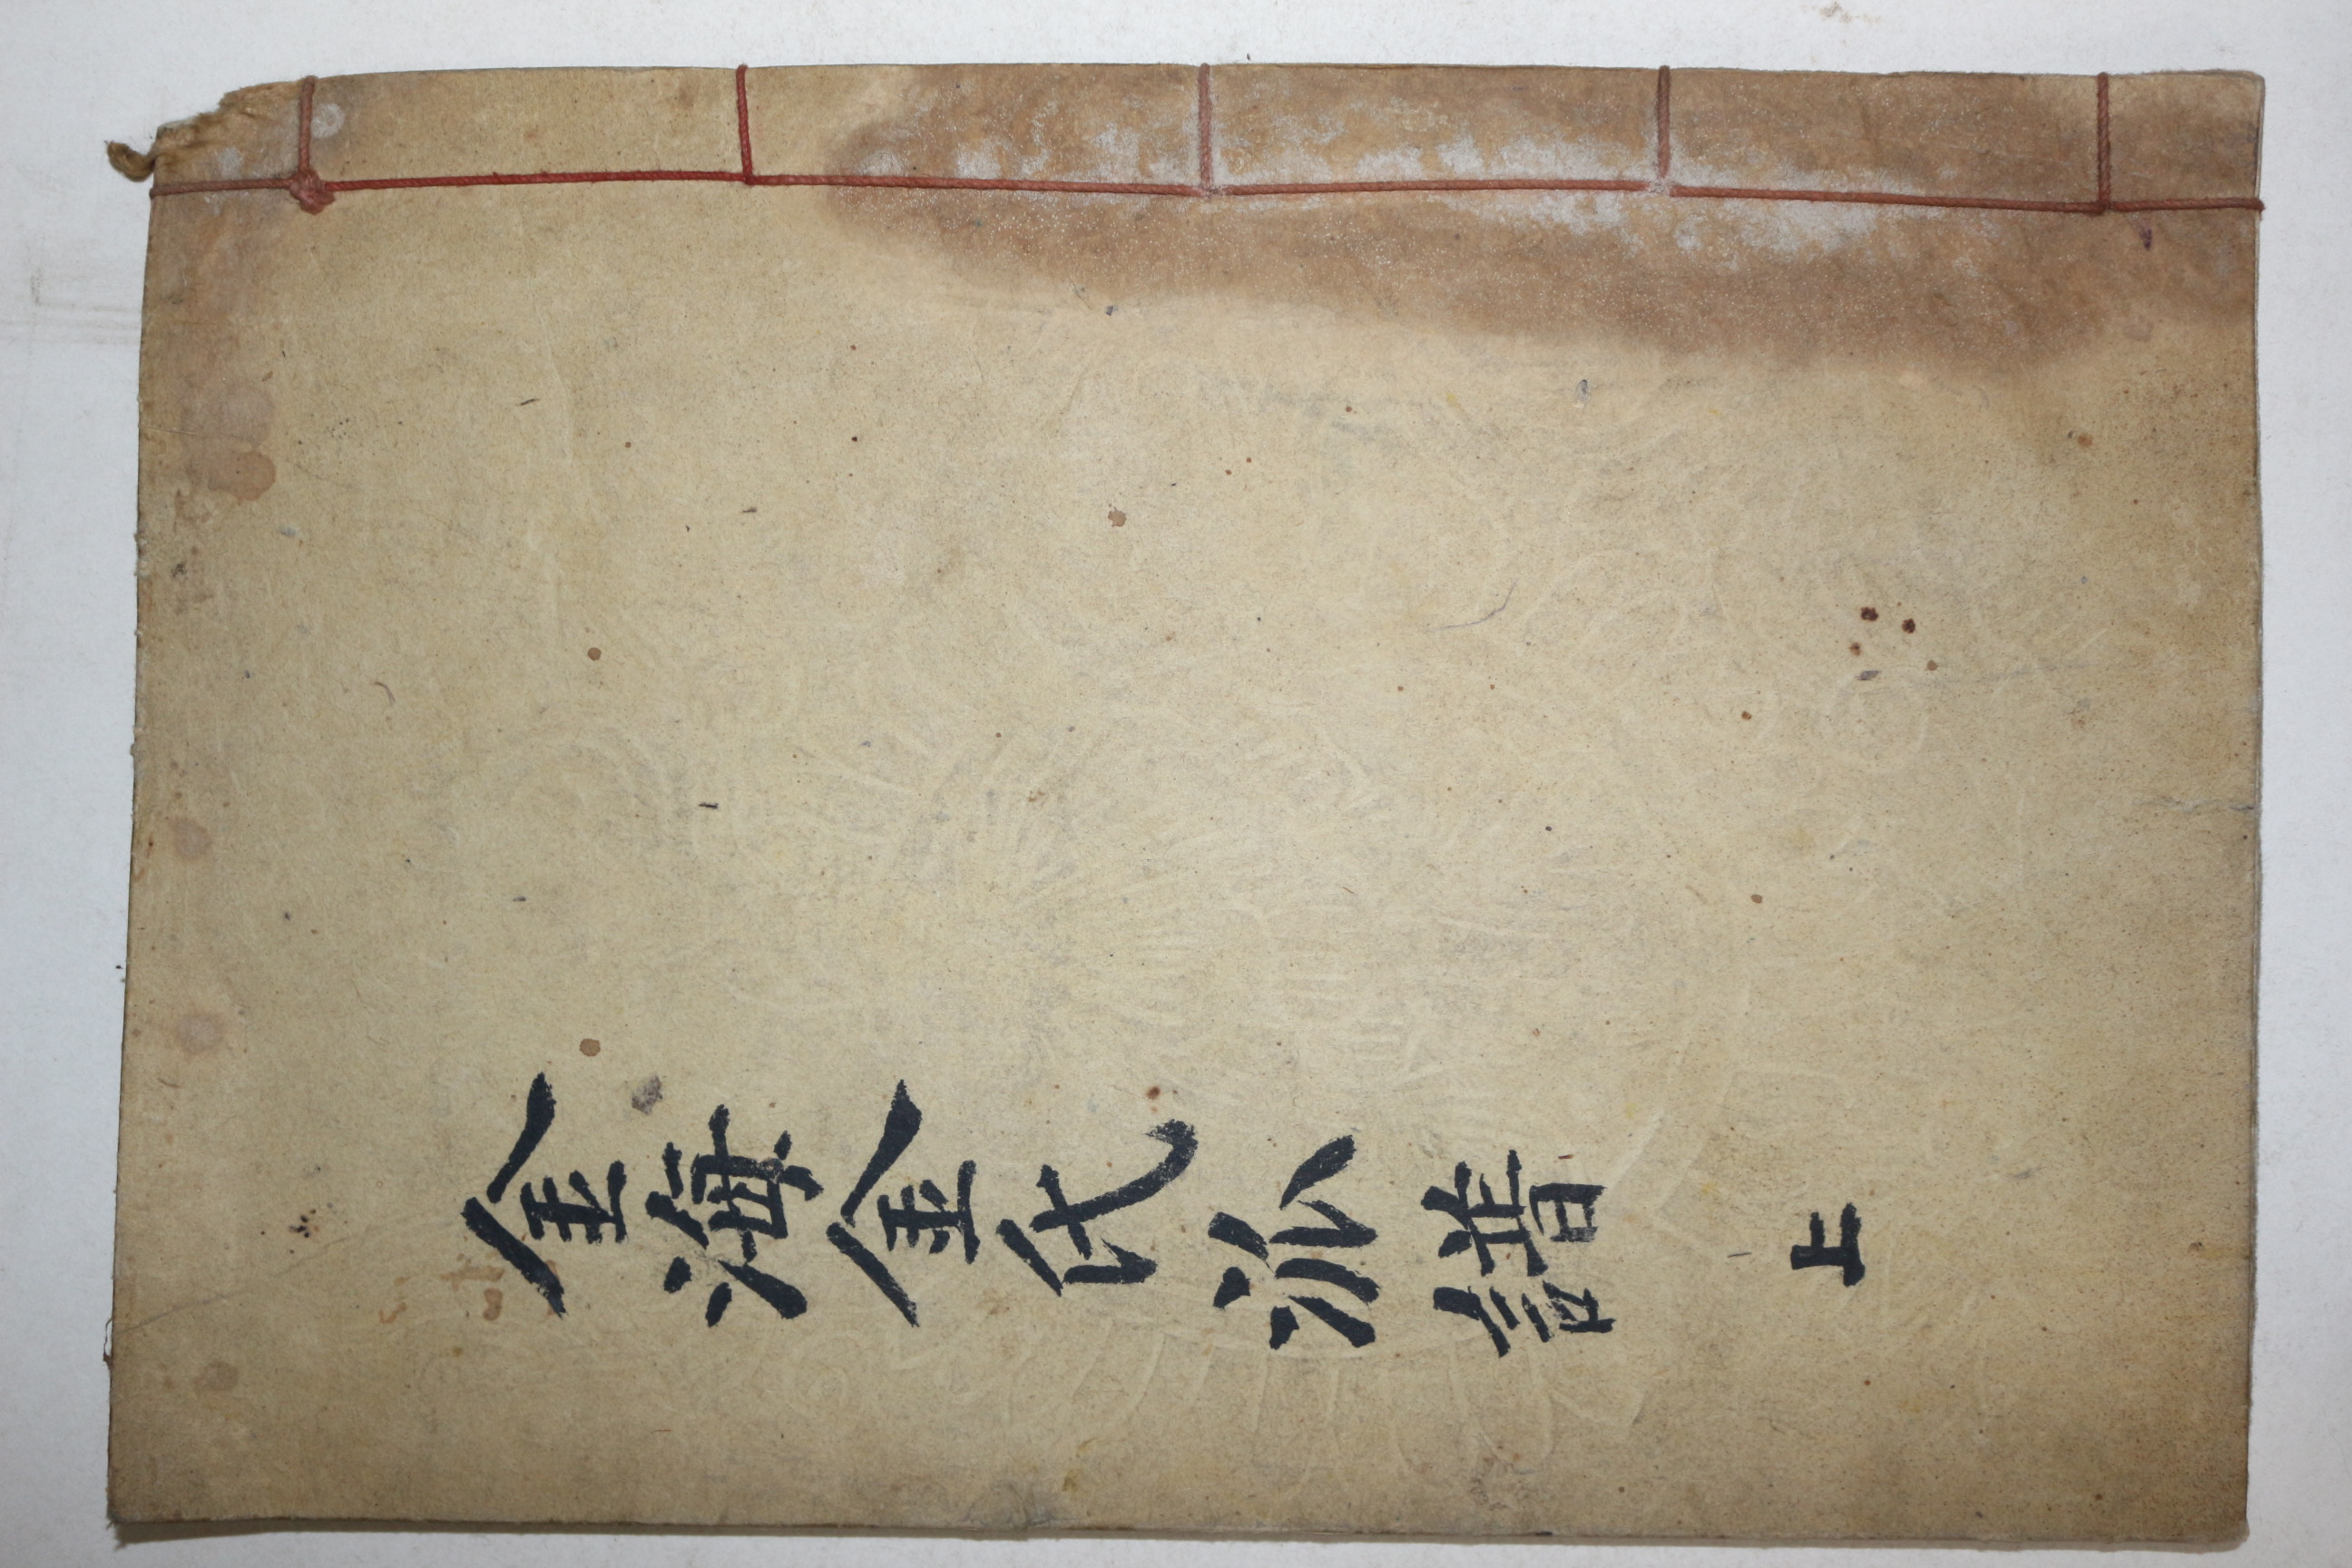 金海金氏派譜 上